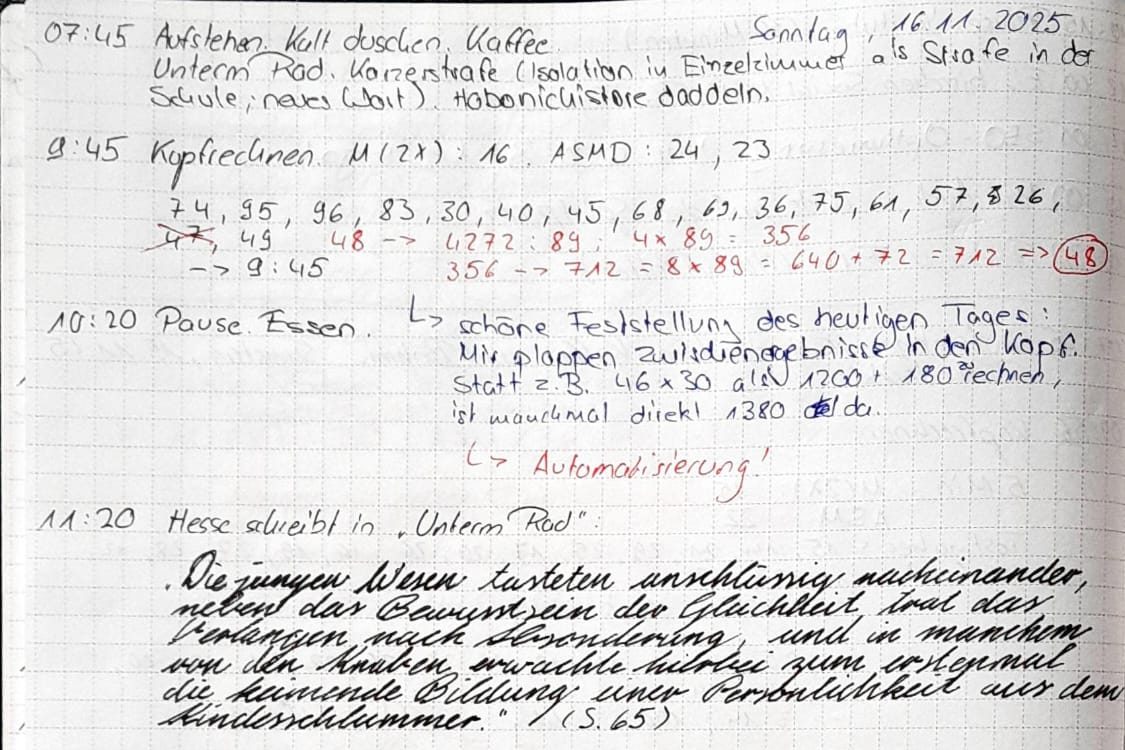 Sonntag, 16.11.2025
07:45 Aufstehen. Kalt duschen. Kaffee.
Unterm Rad. Karzerstrafe (Isolation in Einzelzimmer als Strafe in der
Schule; neues Wort). Hobonichistore daddeln.
9:45 Kopfrechnen. M(2x): 16. ASMD: 24, 23
74, 95, 96, 83, 30, 40, 45, 68, 69, 36, 75, 61, 57, 26,
47, 49 48 -> 4272 : 89; 4x 89 = 356
-> 9:45 356 -> 712 = 8x89 = 640 + 72 = 712 => 48
10:20 Pause. Essen. ↳ schöne Feststellung des heutigen Tages:
Mir ploppen Zwischenergebnisse in den Kopf.
Statt z.B. 46 x 30 als 1200 + 180 rechnen,
ist manchmal direkt 1380 da.
↳ Automatisierung!
11:20 Hesse schreibt in „Unterm Rad":
„Die jungen Wesen tasteten anschlüssig nacheinander,
neben das Bewusstsein der Gleichheit trat das
Verlangen nach Absonderung, und in manchem
von den Knaben erwachte hierbei zum erstenmal
die keimende Bildung einer Persönlichkeit aus dem
Kindesschlummer." (S. 65)